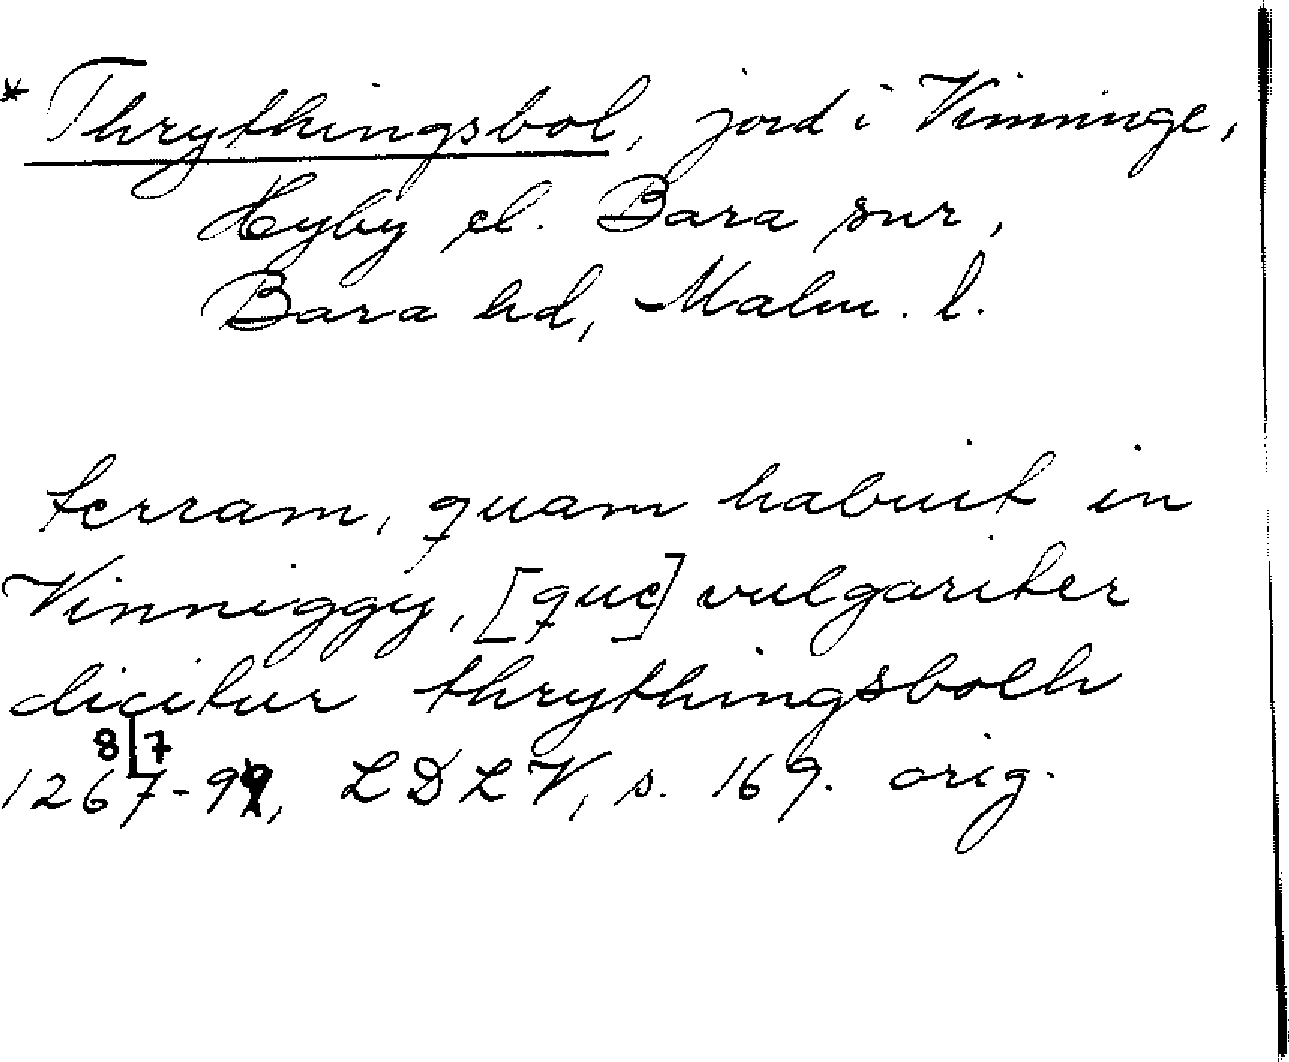 * Thrythingsbol, jord i Vinninge,
Hyby el. Bara snr,
Bara hd, Malm. l.
terram, quam habuit in
Vinniggy, [que] vulgariter
dicitur thrythingsbolh
8 7
1267-99, LDLV, s. 169. orig.